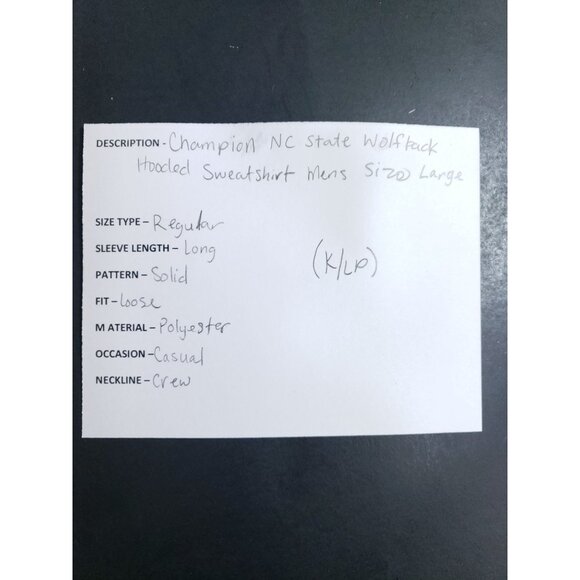 DESCRIPTION - Champion NC State Wolfpack
Hooded Sweatshirt Mens Size Large
SIZE TYPE – Regular
SLEEVE LENGTH – Long
PATTERN – Solid
(K/LP)
FIT – Loose
MATERIAL – Polyester
OCCASION – Casual
NECKLINE – Crew